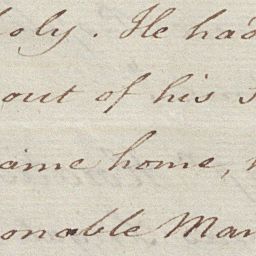 oly. He had
out of his
ame home,
onable Man